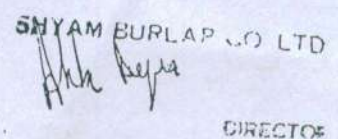 SHYAM BURLAP CO LTD
DIRECTOR